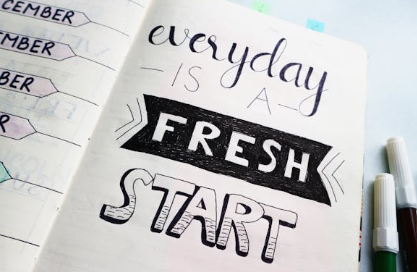 CEMBER
EMBER
BER
R
everyday
IS A
FRESH
START